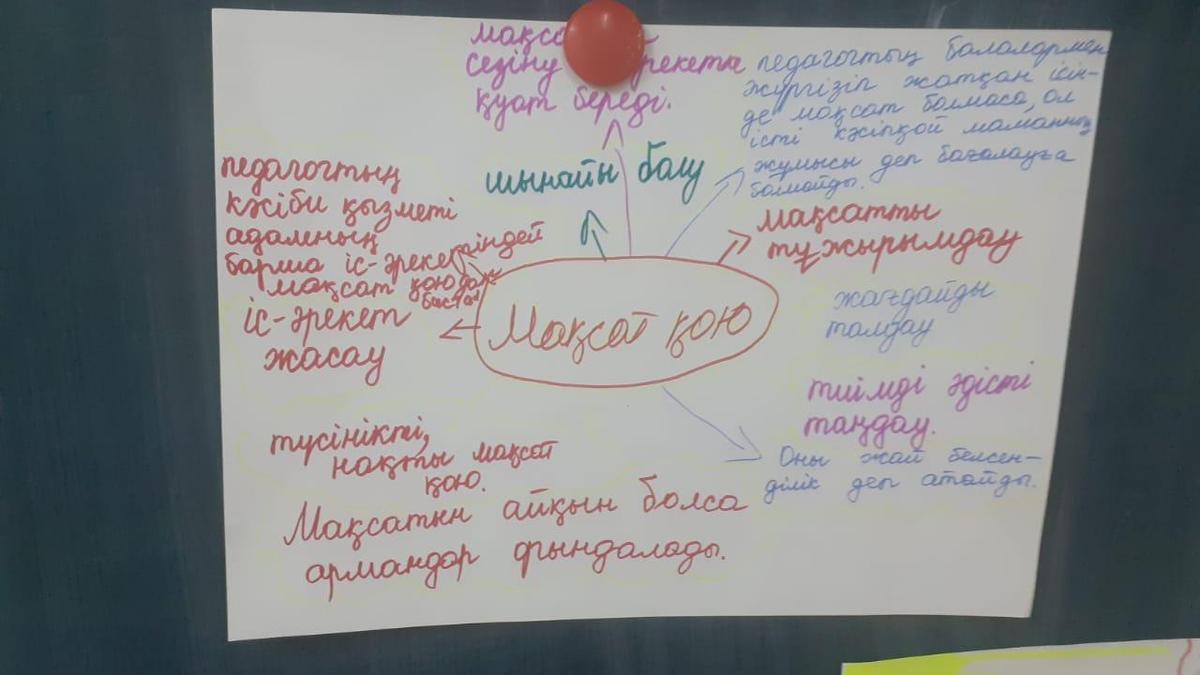 сезіну
қуат береді.
педагогтың балалармен
жүргізіп жатқан ісін-
де мақсат болмаса, ол
істі кәсіпқой маманның
жұмысы деп бағалауға
болмайды.
шынайы болу
педагогтың
кәсіби қызметі
адамның
барша іс-әрекетіндей
мақсат қоюдан
бастап
іс-әрекет
жасау
мақсатты
тұжырымдау
Мақсат қою
жағдайды
талдау
тиімді әдісті
таңдау.
Оны жай белсен-
ділік деп атайды.
түсінікті,
нақты мақсат
қою.
Мақсатың айқын болса
армандар орындалады.